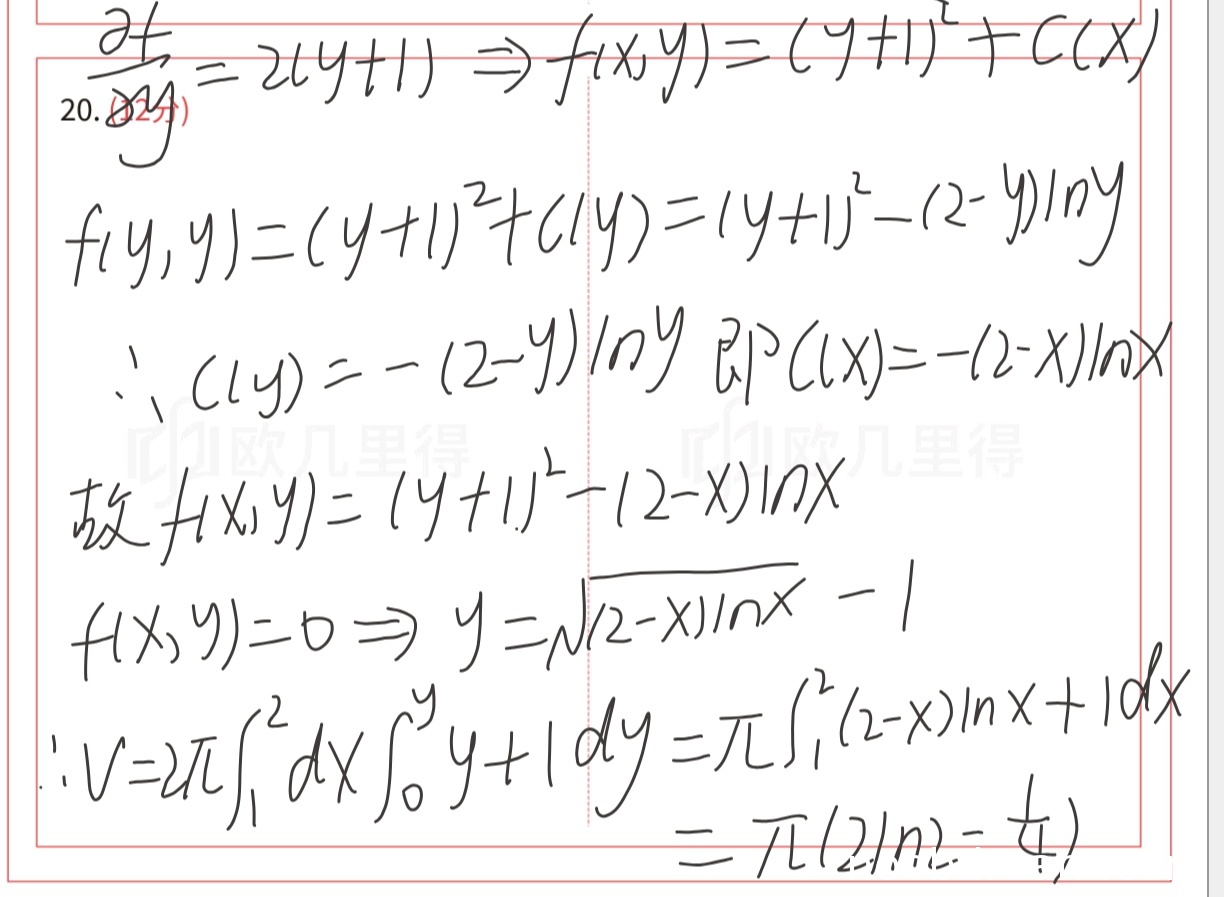 ∂f/∂y = 2(y+1) ⇒ f(x,y) = (y+1)² + C(x)
20. (12分)
f(y,y) = (y+1)² + C(y) = (y+1)² - (2-y)lny
∴ C(y) = -(2-y)lny 即 C(x) = -(2-x)lnx
欧几里得 欧几里得
故 f(x,y) = (y+1)² - (2-x)lnx
f(x,y) = 0 ⇒ y = √((2-x)lnx) - 1
∴ V = 2π∫₁² dx ∫₀^y y+1 dy = π∫₁² (2-x)lnx + 1 dx
= π(2ln2 - 1/4)